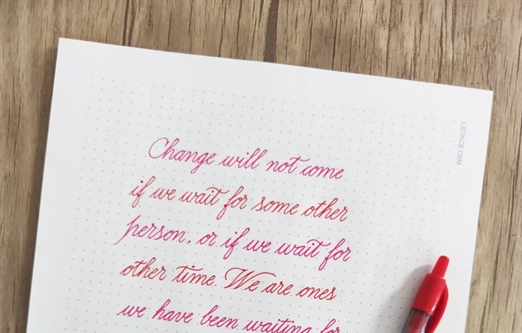 Change will not come
if we wait for some other
person, or if we wait for
other time. We are ones
we have been waiting for
LATKOS.COM